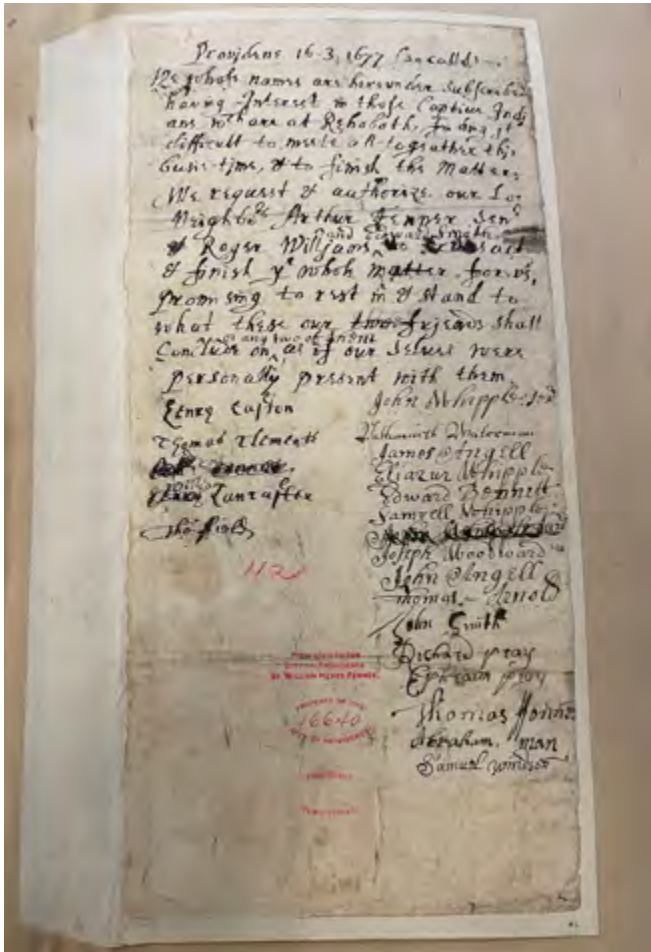 Providenc 16. 3. 1677 (so calld)
We whose names are hereunder Subscribed
having Interest in those Captive Indi
ans wch are at Rehoboth, finding it
difficult to meete altogeather this
busie time, & to finish the Matter:
We request & authorize our Lo:
Neighbrs Arthur Fenner Senr
and Edward Smith
& Roger Williams to
& finish ye whole matter for us,
promising to rest in & stand to
what these our two friends shall
or any two of them
Conclude on, as if our selves were
personally present with them
Thomas Clements
Tho: ffield
John Whipple Junr
Nathaniell Waterman
James Angell
Eliazur Whipple
Edward Bennett
Samuell Whipple
Joseph Woodward
John Angell
Thomas Arnold
John Smith
Richard pray
Ephraim pray
Thomas
Abraham man
Samuel winsor
42
BY WILLIAM
PROPERTY OF THE
16640
CITY OF PROVIDENCE